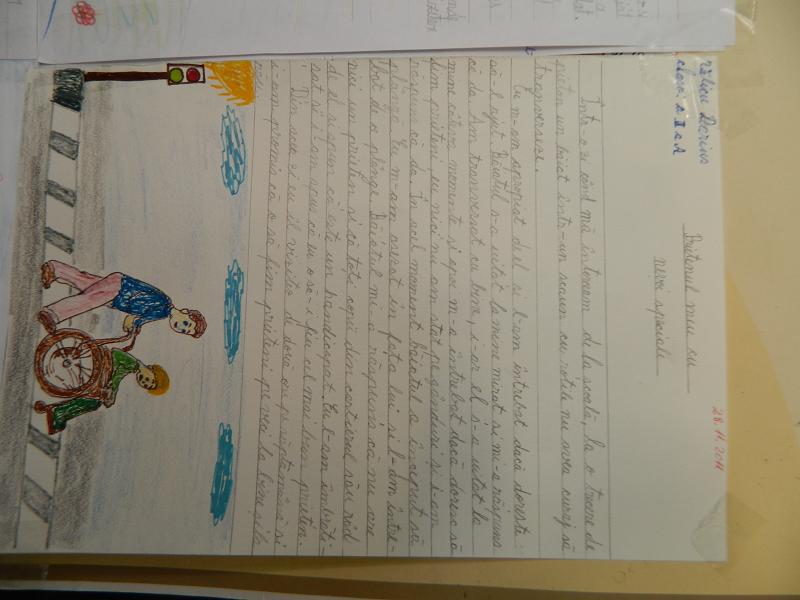 28.11.2011
Darius
clasa a II a A
Prietenul meu cu
nevoi speciale
Într-o zi când mă întorceam de la scoală, la o trecere de
pietoni un băiat într-un scaun cu rotile nu avea curaj să
traverseze.
Eu m-am apropiat de el si l-am întrebat dacă doreste
să-l ajut. Băiatul s-a uitat la mine mirat si mi-a răspuns
că da. Am traversat cu bine, i-ar el s-a uitat la
mine câteva momente si apoi m-a întrebat dacă doresc să
fim prieteni eu nici nu am stat pe gânduri si i-am
răspuns că da. În acel moment băiatul a început să
plângă. Eu m-am asezat în fata lui si l-am între-
bat de ce plânge. Băiatul mi-a răspuns că nu are
nici un prieten si că toti copii din cartierul său râd
de el si spun că este un handicapat. Eu l-am îmbrăti-
sat si i-am spus că eu o să-i fiu cel mai bun prieten.
Din acea zi eu îl vizitez de două ori pe săptămână si
i-am promis că o să fim prieteni pe veci la bine si la